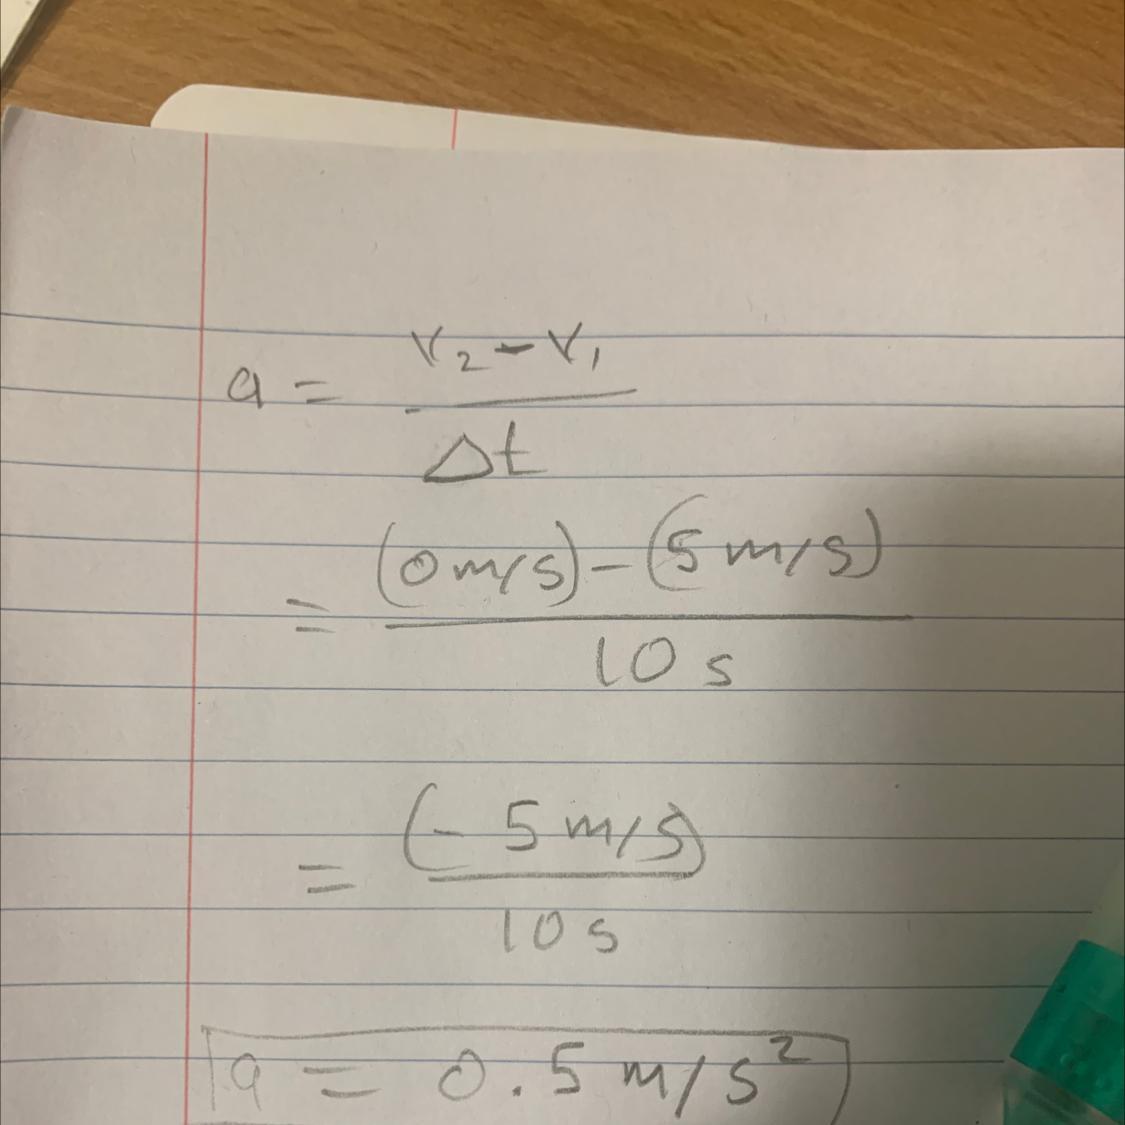 a = v₂ - v₁
Δt
= (0 m/s) - (5 m/s)
10 s
= (- 5 m/s)
10 s
a = 0.5 m/s²